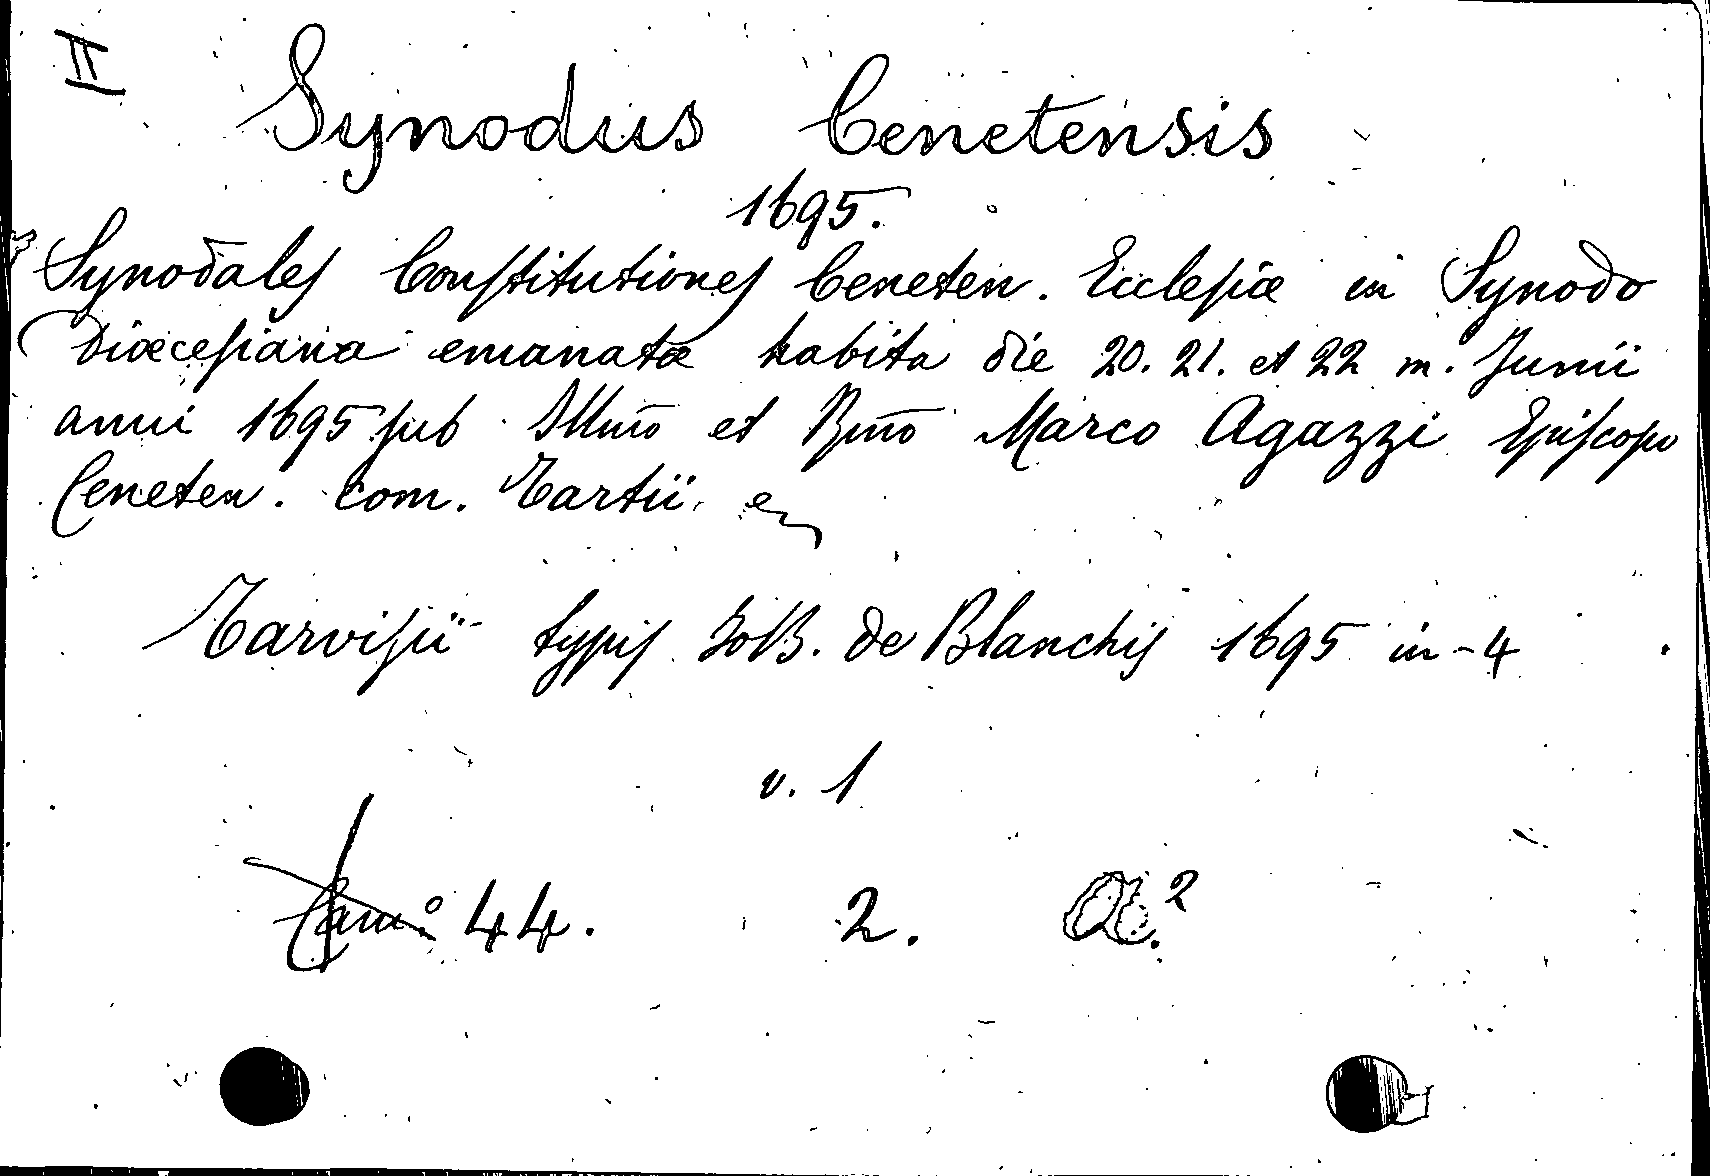 II
Synodus Cenetensis
1695.
Synodaleſ Conſtitutioneſ Ceneten. Eccleſiæ in Synodo
Diœceſiana emanatæ habita die 20. 21. et 22 m. Junii
anni 1695 ſub Illmō et Rmō Marco Agazzi Epiſcopo
Ceneten. com. Tartii
Tarviſii typiſ JoB. de Blanchiſ 1695 in-4
v. 1
Cam.º 44. 2.